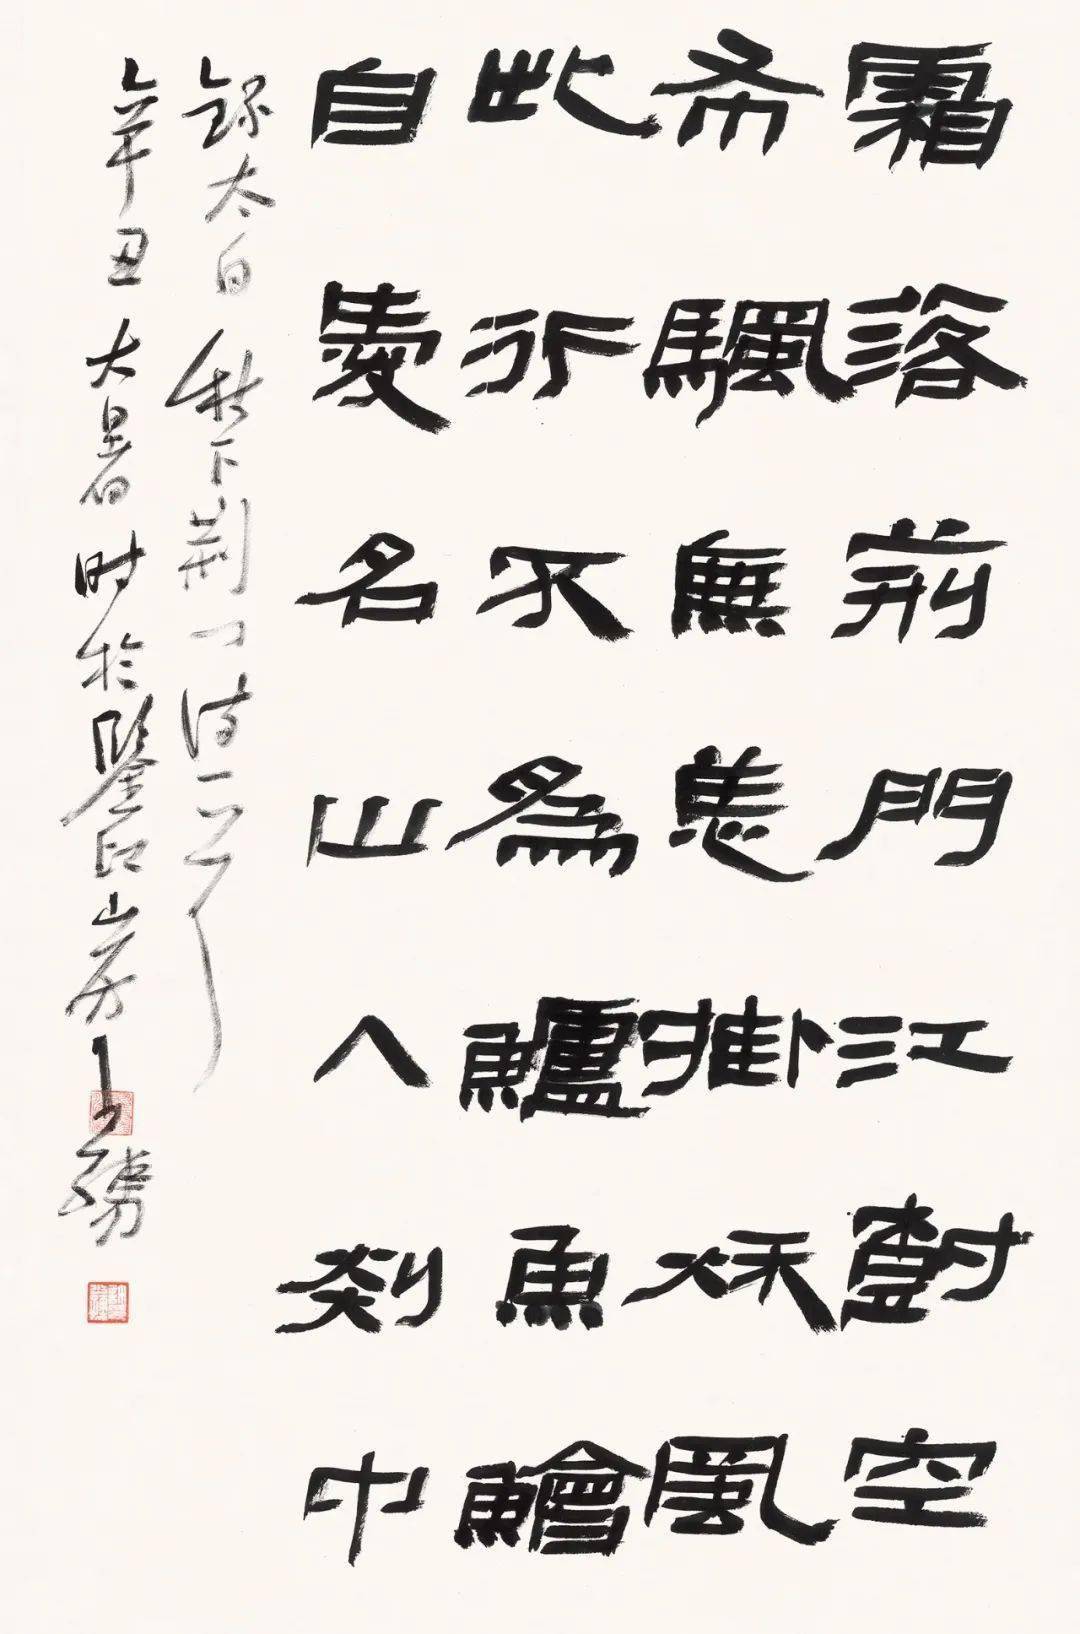 霜落荊門江樹空
布颿無恙掛秌風
此行不為鱸魚鱠
自愛名山入剡中
錄太白秋下荊门诗一首
辛丑大暑时於鑒印山房